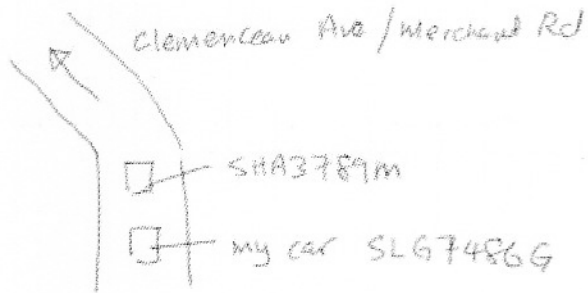 Clemenceau Ave / Merchant Rd
SHA3789M
my car SLG7486G